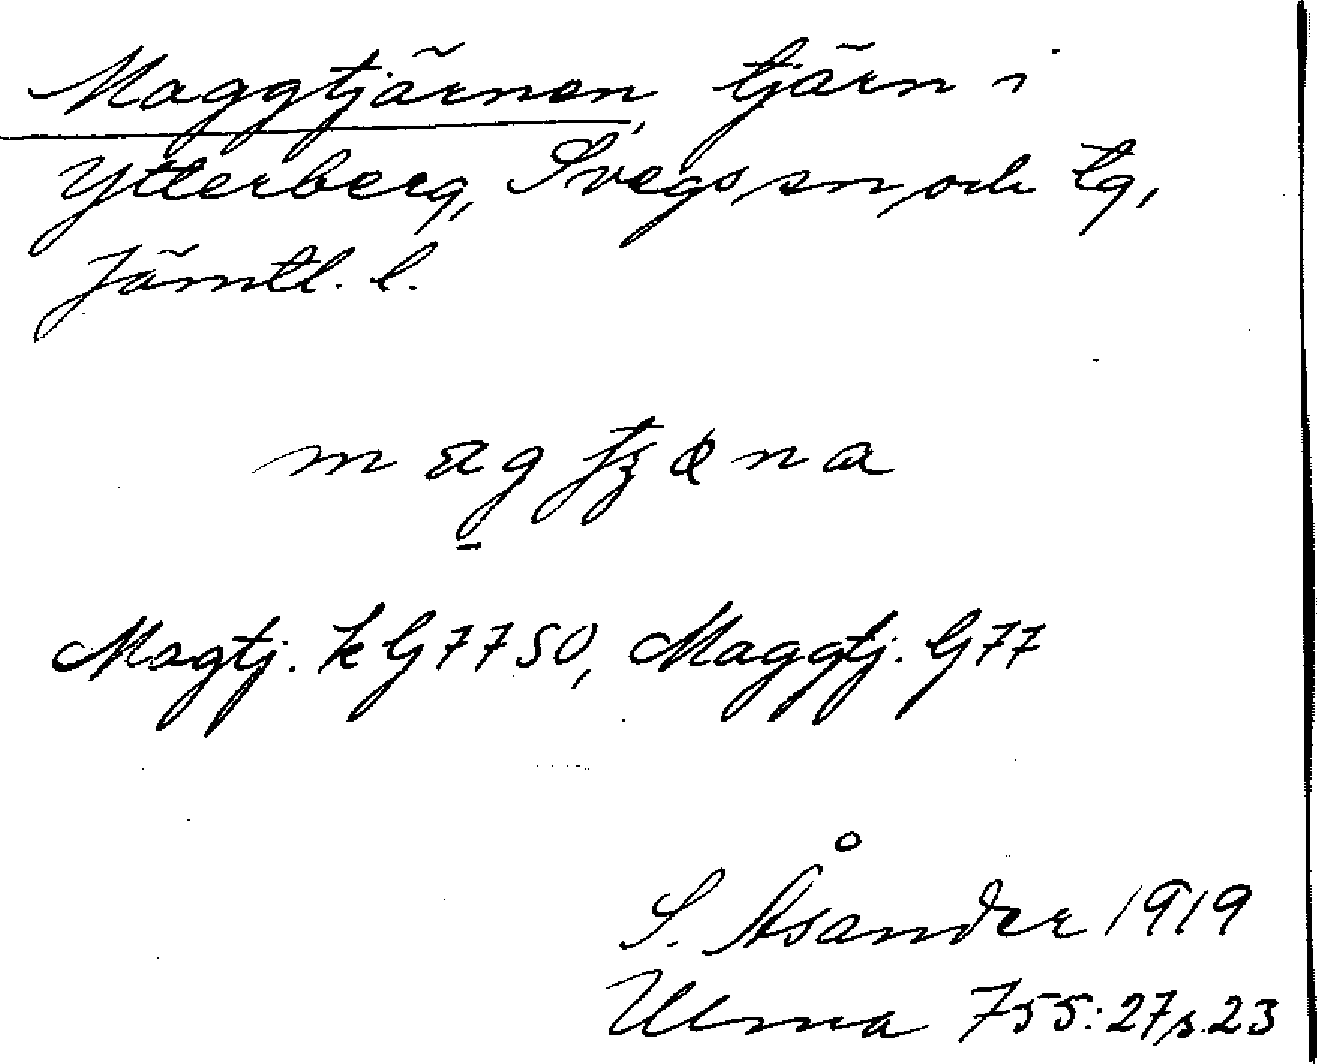 Maggtjärnen, tjärn i
Ytterberg, Svegs sn och tg,
Jämtl. l.
Magtj. k G 7750, Maggtj. G 77
S. Åsander 1919
Ulma 755:27 s. 23